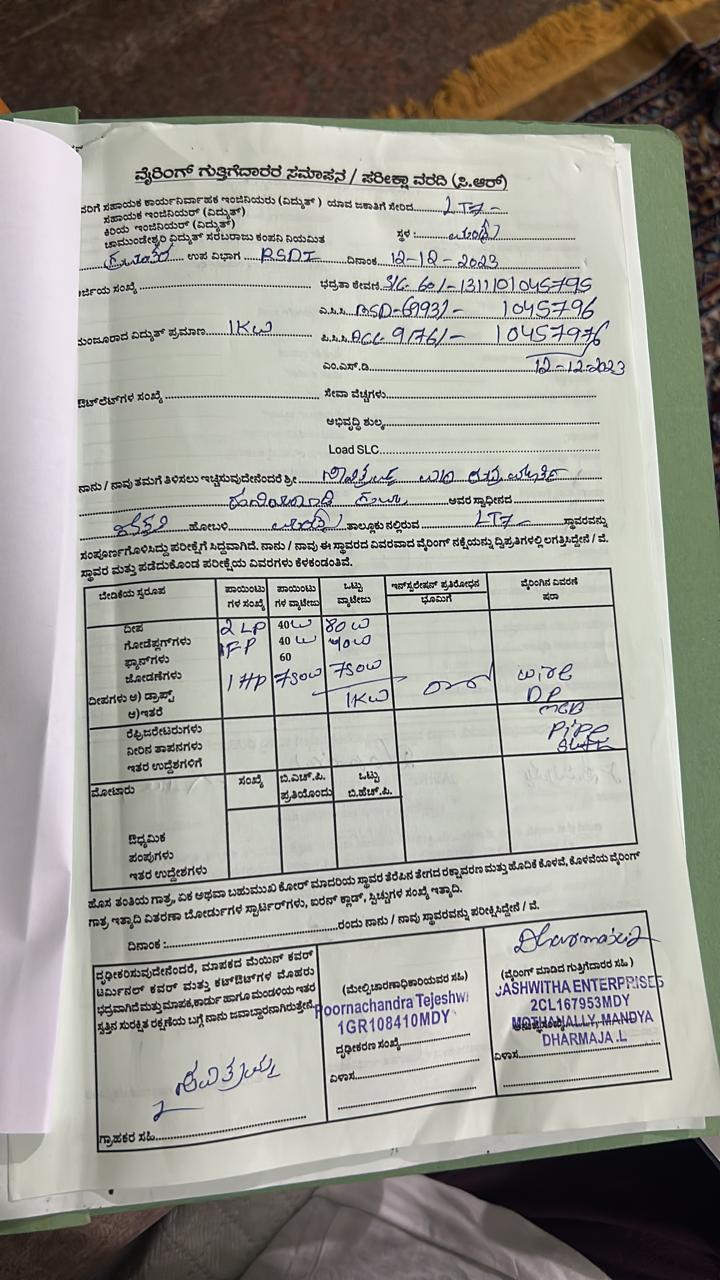 ವೈರಿಂಗ್ ಗುತ್ತಿಗೆದಾರರ ಸಮಾಪನ / ಪರೀಕ್ಷಾ ವರದಿ (ಸಿ.ಆರ್)
ವರಿಗೆ ಸಹಾಯಕ ಕಾರ್ಯನಿರ್ವಾಹಕ ಇಂಜಿನಿಯರು (ವಿದ್ಯುತ್) ಯಾವ ಜಕಾತಿಗೆ ಸೇರಿದ LT7
ಸಹಾಯಕ ಇಂಜಿನಿಯರ್ (ವಿದ್ಯುತ್)
ಕಿರಿಯ ಇಂಜಿನಿಯರ್ (ವಿದ್ಯುತ್)
ಚಾಮುಂಡೇಶ್ವರಿ ವಿದ್ಯುತ್ ಸರಬರಾಜು ಕಂಪನಿ ನಿಯಮಿತ ಸ್ಥಳ :
ಉಪ ವಿಭಾಗ RSDI ದಿನಾಂಕ 12-12-2023
ರ್ಜಿಯ ಸಂಖ್ಯೆ ಭದ್ರತಾ ಠೇವಣಿ S/C- 60/-1311101045795
ಎ.ಸಿ.ಸಿ. MSD-6993/- 1045796
ಮಂಜೂರಾದ ವಿದ್ಯುತ್ ಪ್ರಮಾಣ 1KW ಪಿ.ಸಿ.ಸಿ. ACC 9176/- 10457976
ಎಂ.ಎಸ್.ಡಿ. 12-12-2023
ಔಟ್‌ಲೆಟ್‌ಗಳ ಸಂಖ್ಯೆ ಸೇವಾ ವೆಚ್ಚಗಳು
ಅಭಿವೃದ್ಧಿ ಶುಲ್ಕ
Load SLC
ನಾನು / ನಾವು ತಮಗೆ ತಿಳಿಸಲು ಇಚ್ಚಿಸುವುದೇನೆಂದರೆ ಶ್ರೀ
ಅವರ ಸ್ವಾಧೀನದ
ಹೋಬಳಿ ತಾಲ್ಲೂಕು ನಲ್ಲಿರುವ LT7 ಸ್ಥಾವರವನ್ನು
ಸಂಪೂರ್ಣಗೊಳಿಸಿದ್ದು ಪರೀಕ್ಷೆಗೆ ಸಿದ್ದವಾಗಿದೆ. ನಾನು / ನಾವು ಈ ಸ್ಥಾವರದ ವಿವರವಾದ ವೈರಿಂಗ್ ನಕ್ಷೆಯನ್ನು ದ್ವಿಪ್ರತಿಗಳಲ್ಲಿ ಲಗತ್ತಿಸಿದ್ದೇನೆ / ವೆ.
ಸ್ಥಾವರ ಮತ್ತು ಪಡೆದುಕೊಂಡ ಪರೀಕ್ಷೆಯ ವಿವರಗಳು ಕೆಳಕಂಡಂತಿವೆ.
ಬೇಡಿಕೆಯ ಸ್ವರೂಪ ಪಾಯಿಂಟು ಗಳ ಸಂಖ್ಯೆ ಪಾಯಿಂಟು ಗಳ ವ್ಯಾಟೇಜು ಒಟ್ಟು ವ್ಯಾಟೇಜು ಇನ್‌ಸ್ಯಲೇಷನ್ ಪ್ರತಿರೋಧನ ಭೂಮಿಗೆ ವೈರಿಂಗಿನ ವಿವರಣೆ ಷರಾ
ದೀಪ 2 LP 40W 80W
ಗೋಡೆಪ್ಲಗ್‌ಗಳು 1FP 40W 40W
ಫ್ಯಾನ್‌ಗಳು 60
ಜೋಡಣೆಗಳು 1 HP 750W 750W wire
ದೀಪಗಳು ಅ) ಡ್ರಾಫ್ಟ್ 1KW DP
ಆ)ಇತರೆ MCB
ರೆಫ್ರಿಜರೇಟರುಗಳು Pipe
ನೀರಿನ ತಾಪನಗಳು
ಇತರ ಉದ್ದೇಶಗಳಿಗೆ
ಮೋಟಾರು ಸಂಖ್ಯೆ ಬಿ.ಎಚ್.ಪಿ. ಪ್ರತಿಯೊಂದು ಒಟ್ಟು ಬಿ.ಹೆಚ್.ಪಿ.
ಔಧ್ಯಮಿಕ
ಪಂಪುಗಳು
ಇತರ ಉದ್ದೇಶಗಳು
ಹೊಸ ತಂತಿಯ ಗಾತ್ರ, ಏಕ ಅಥವಾ ಬಹುಮುಖ ಕೋರ್ ಮಾದರಿಯ ಸ್ಥಾವರ ತೆರೆಪಿನ ತೇಗದ ರಕ್ಷಾವರಣ ಮತ್ತು ಹೊದಿಕೆ ಕೊಳವೆ, ಕೊಳವೆಯ ವೈರಿಂಗ್
ಗಾತ್ರ ಇತ್ಯಾದಿ ವಿತರಣಾ ಬೋರ್ಡುಗಳ ಸ್ಟಾರ್ಟರ್‌ಗಳು, ಐರನ್ ಕ್ಲಾಡ್, ಸ್ವಿಚ್ಚುಗಳ ಸಂಖ್ಯೆ ಇತ್ಯಾದಿ.
ದಿನಾಂಕ : ರಂದು ನಾನು / ನಾವು ಸ್ಥಾವರವನ್ನು ಪರೀಕ್ಷಿಸಿದ್ದೇನೆ / ವೆ.
ದೃಢೀಕರಿಸುವುದೇನೆಂದರೆ, ಮಾಪಕದ ಮೆಯಿನ್ ಕವರ್
ಟರ್ಮಿನಲ್ ಕವರ್ ಮತ್ತು ಕಟ್‌ಔಟ್‌ಗಳ ಮೊಹರು
ಭದ್ರವಾಗಿದೆ ಮತ್ತು ಮಾಪಕ,ಕಾರ್ಡು ಹಾಗೂ ಮಂಡಳಿಯ ಇತರ
ಸ್ವತ್ತಿನ ಸುರಕ್ಷಿತ ರಕ್ಷಣೆಯ ಬಗ್ಗೆ ನಾನು ಜವಾಬ್ದಾರನಾಗಿರುತ್ತೇನೆ.
ಗ್ರಾಹಕರ ಸಹಿ
(ಮೇಲ್ವಿಚಾರಣಾಧಿಕಾರಿಯವರ ಸಹಿ)
Poornachandra Tejeshwi
1GR108410MDY
ದೃಢೀಕರಣ ಸಂಖ್ಯೆ
ವಿಳಾಸ
(ವೈರಿಂಗ್ ಮಾಡಿದ ಗುತ್ತಿಗೆದಾರರ ಸಹಿ)
JASHWITHA ENTERPRISES
2CL167953MDY
MOTHANALLY, MANDYA
DHARMAJA .L
ವಿಳಾಸ